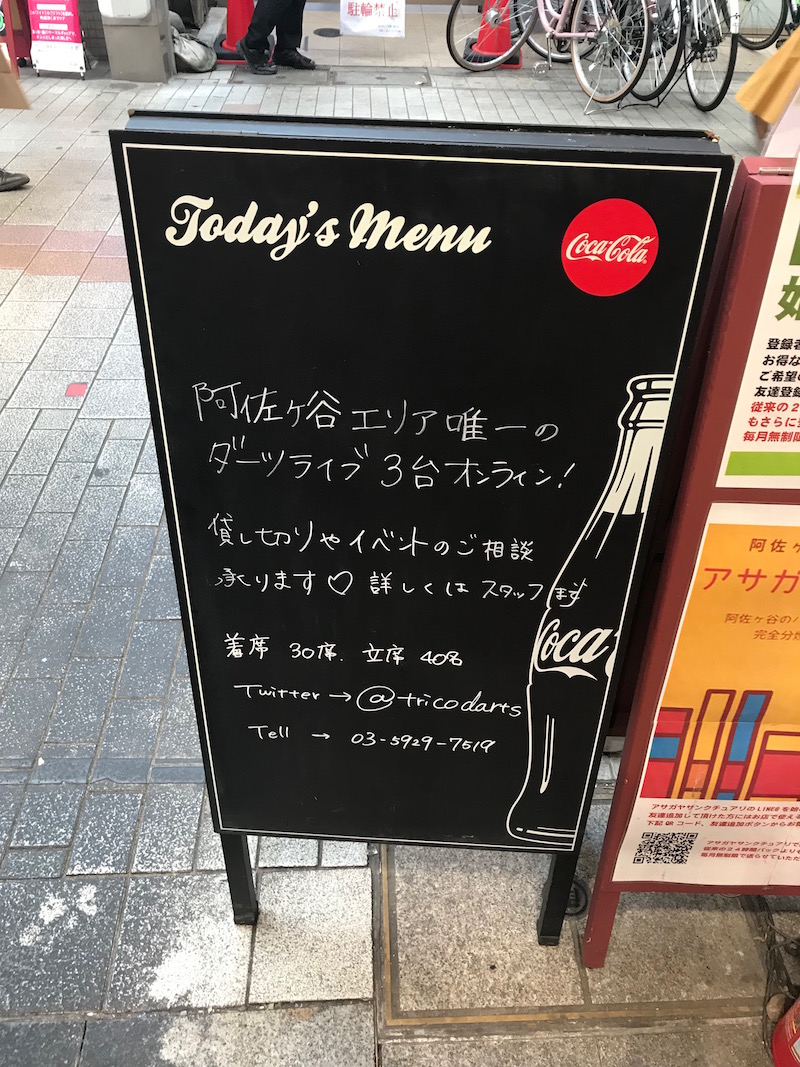 駐輪禁止
Today's Menu
Coca-Cola
阿佐ヶ谷エリア唯一の
ダーツライブ 3台オンライン!
貸し切りやイベントのご相談
承ります♡ 詳しくはスタッフまで
着席 30席. 立席 40名
Twitter → @tricodarts
Tell → 03-5929-7519
Coca
登録者
お得な
ご希望の
友達登録
従来の2
もさらに
毎月無制限
阿佐ヶ
アサガ
阿佐ヶ谷のパ
完全分煙
アサガヤサンクチュアリのLINE@を始
友達追加して頂けた方にはお店で使える
下記QRコード、友達追加ボタンからお
アサガヤサンクチュアリで
従来の24時間パックよりも
毎月無制限で送らせていただ